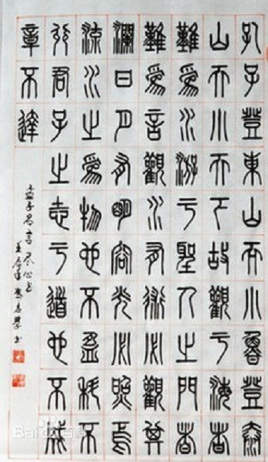 孔子登東山而小魯登泰
山而小天下故觀于海者
難爲水游于聖人之門者
難爲言觀水有術必觀其
瀾日月有明容光必照焉
流水之爲物也不盈科不
行君子之志于道也不成
章不達
孟子名言尽心上